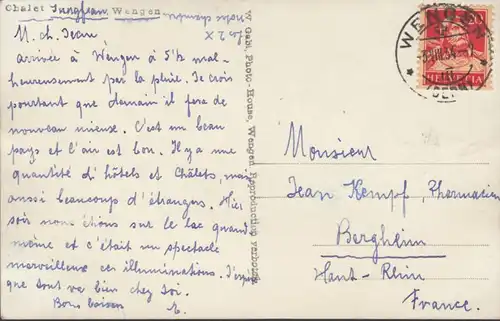 Chalet Jungfrau Wengen
notre chambre
M. ch. Jean
arrivée à Wengen à 5½ mal-
heureusement par la pluie. Je crois
pourtant que demain il fera de
nouveau mieux. C'est un beau
pays et l'air est bon. Il y a une
quantité d'hôtels et Châlets, mais
aussi beaucoup d'étrangers. Hier
soir nous étions sur le Lac quand
même et c'était un spectacle
merveilleux ces illuminations. J'espère
que tout va bien chez toi.
Bons baisers
W. Gabi, Photo-House, Wengen. Reproduction verboten
WENGEN
(BERN)
HELVETIA
Monsieur
Jean Kempf, Pharmacien
Bergheim
Haut-Rhin
France.